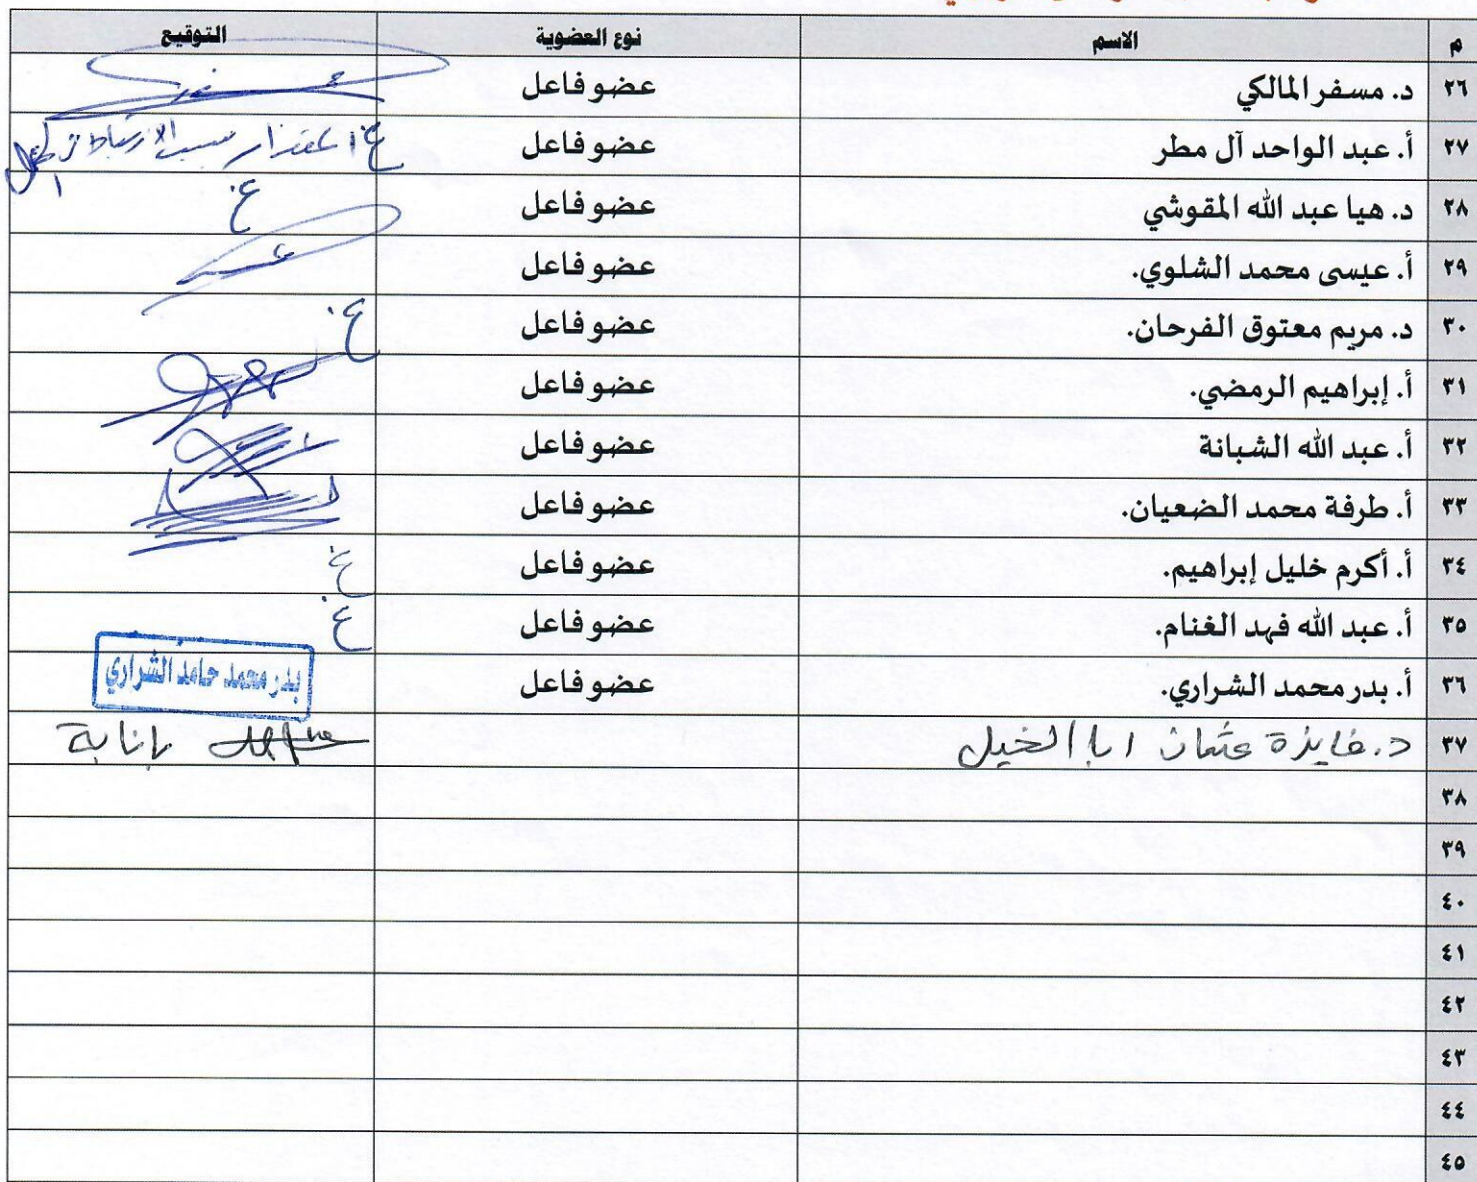 م الاسم نوع العضوية التوقيع
٢٦ د. مسفر المالكي عضو فاعل
٢٧ أ. عبد الواحد آل مطر عضو فاعل غ. اعتذار بسبب الارتباط
٢٨ د. هيا عبد الله المقوشي عضو فاعل غ.
٢٩ أ. عيسى محمد الشلوي. عضو فاعل
٣٠ د. مريم معتوق الفرحان. عضو فاعل غ.
٣١ أ. إبراهيم الرمضي. عضو فاعل
٣٢ أ. عبد الله الشبانة عضو فاعل
٣٣ أ. طرفة محمد الضعيان. عضو فاعل
٣٤ أ. أكرم خليل إبراهيم. عضو فاعل غ
٣٥ أ. عبد الله فهد الغنام. عضو فاعل غ.
٣٦ أ. بدر محمد الشراري. عضو فاعل بدر محمد حامد الشراري
٣٧ د. فايزة عثمان ابا الخيل إنابة
٣٨
٣٩
٤٠
٤١
٤٢
٤٣
٤٤
٤٥